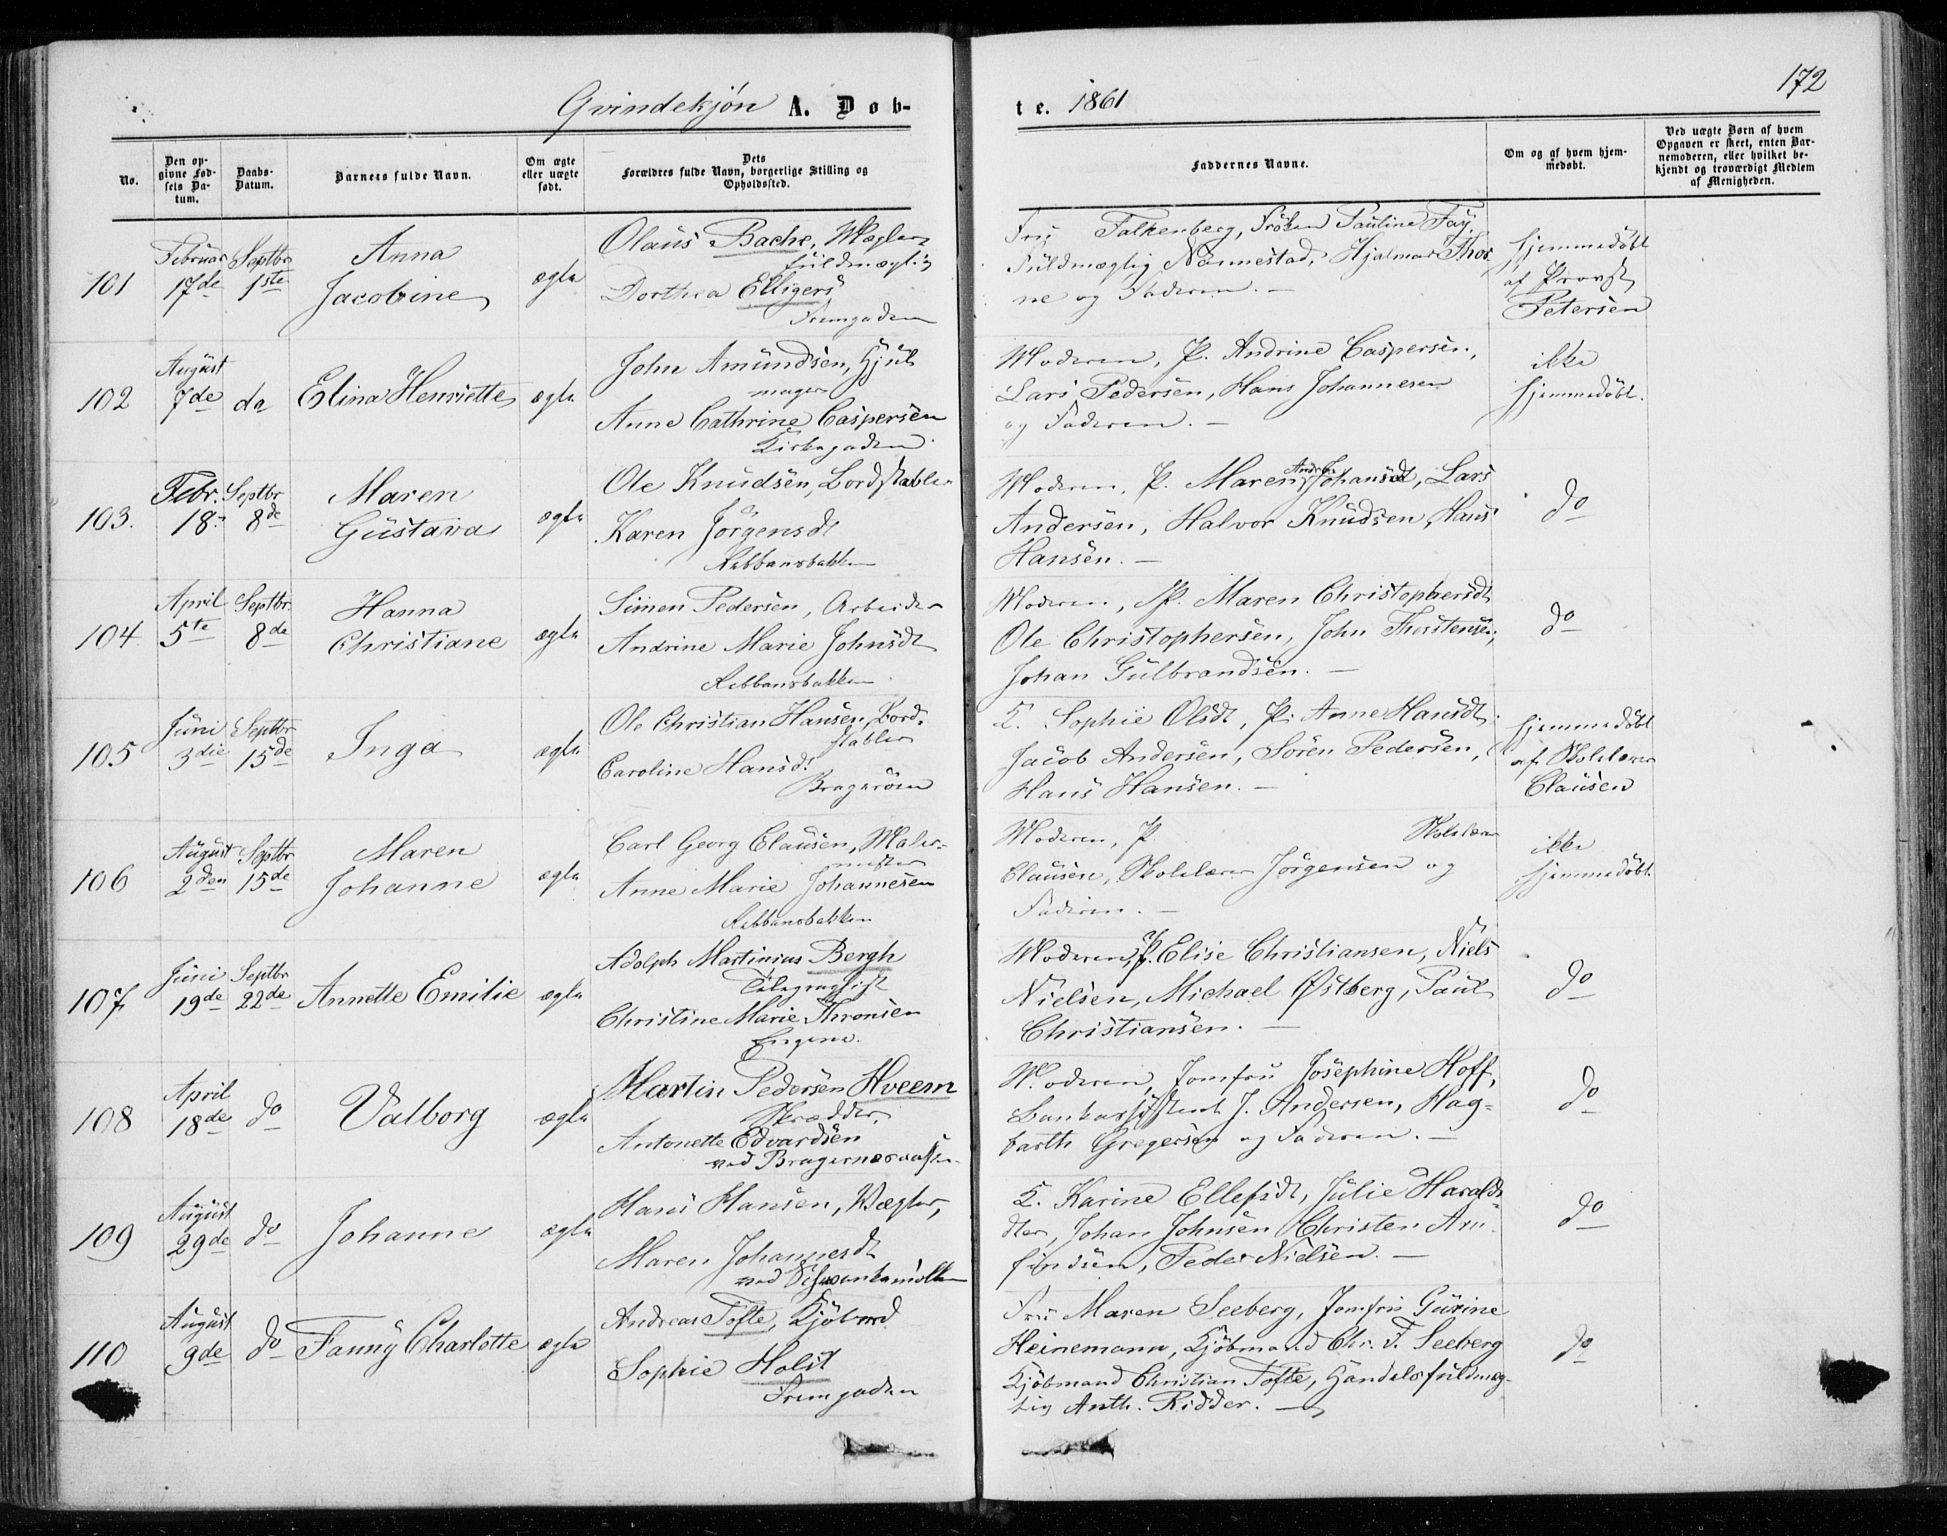 172
Qvindekjøn A. Døb-
te. 1861
No.
Den opgivne Fødsels Datum.
Daabs-Datum.
Barnets fulde Navn.
Om ægte eller uægte født.
Dets Forældres fulde Navn, borgerlige Stilling og Opholdssted.
Faddernes Navne.
Om og af hvem hjemmedøbt.
Ved uægte Børn af hvem Opgaven er skeet, enten Barnemoderen, eller hvilket bekjendt og troværdigt Medlem af Menigheden.
101
Februar 17de
Septbr 1ste
Anna
Jacobine
ægte
Olaus Bache, Mægler
fuldmægtig
Dorthea Elligers
Fremgaden
Fru Falkenberg, Frøken Pauline Fay,
Fuldmægtig Nannestad, Hjalmar Thor
ne og Faderen. —
hjemmedøbt
af Provst
Petersen
102
August 7de
do
Elina Henriette
ægte
John Amundsen, Hjul
mager
Anne Cathrine Caspersen
Kirkegaden
Moderen, P. Andrine Caspersen,
Lars Pedersen, Hans Johannesen
og Faderen. —
ikke
hjemmedøbt.
103.
Febr. 18.
Septbr 8de
Maren
Gustava
ægte
Ole Knudsen, Bordstabler
Karen Jörgensdt
Ribbansbakken
Moderen, P. Maren Andrea Johansdt, Lars
Andersen, Halvor Knudsen, Hans
Hansen. —
do
104
April 5te
Septbr. 8de
Hanna
Christiane
ægte
Simen Pedersen, Arbeider
Andrine Marie Johnsdt
Ribbansbakken
Moderen, P. Maren Christophersdt
Ole Christophersen, John Thorstensen,
Johan Gulbrandsen. —
do
105
Juni 3die
Septbr 15de
Inga
ægte
Ole Christian Hansen, Bord
stabler
Caroline Hansdt
Bragerøen
K. Sophie Olsdt, P. Anne Hansdt
Jacob Andersen, Sören Pedersen,
Hans Hansen. —
hjemmedøbt
af Skolelærer
Clausen
106
August 2den
Septbr 15de
Maren
Johanne
ægte
Carl Georg Clausen, Maler-
mester
Anne Marie Johannesen
Ribbansbakken
Moderen, P. Skolelærer
Clausen, Skolelærer Jörgensen og
Faderen. —
ikke
hjemmedøbt
107
Juni 19de
Septbr 22de
Annette Emilie
ægte
Adolph Martinius Bergh
Telegraphist
Christine Marie Thronsen
Engene.
Moderen, P. Elise Christiansen, Niels
Nielsen, Michael Østberg, Paul
Christiansen. —
do
108
April 18de
do
Valborg
ægte
Martin Pedersen Hveem
Skrædder,
Antonette Edvardsen
ved Bragernesaasen
Moderen, Jomfru Josephine Hoff,
Bankassistent J. Andersen, Hag-
barth Gregersen og Faderen. —
do
109
August 29de
do
Johanne
ægte
Hans Hansen, Vægter,
Maren Johannesdt
ved
K. Karine Ellefsdt, Julie Haralds-
dter, Johan Johnsen Christen Arn
findsen, Peder Nielsen. —
do
110
August 9de
do
Fanny Charlotte
ægte
Andreas Tofte, Kjøbmd
Sophie Holst
Fremgaden
Fru Maren Seeberg, Jomfru Gurine
Heinemann, Kjøbmand Chr. F. Seeberg
Kjøbmand Christian Tofte, Handelsfuldmæg-
tig Anth. Ridder. —
do